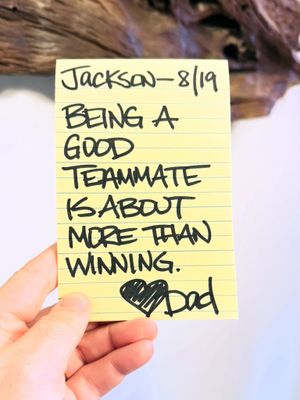 JACKSON—8/19
BEING A
GOOD
TEAMMATE
IS ABOUT
MORE THAN
WINNING.
Dad